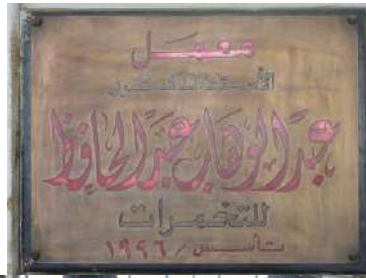 معمل
الأستاذ الدكتور
عبد الوهاب عبد الحافظ
للتخمرات
تأسس / ١٩٩٦